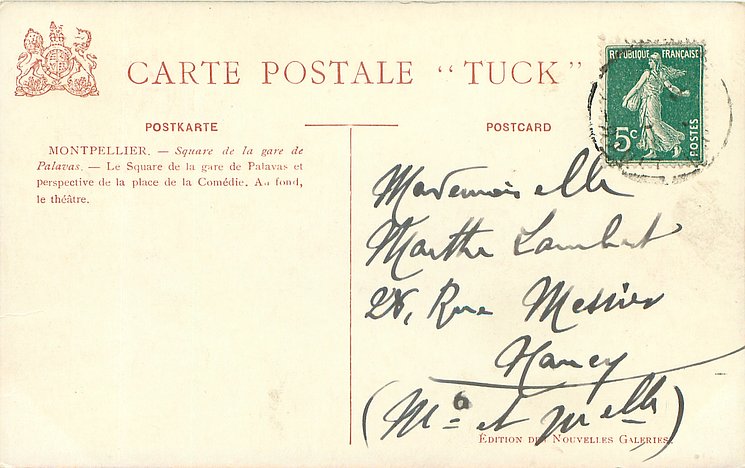 CARTE POSTALE "TUCK"
POSTKARTE
POSTCARD
MONTPELLIER. — Square de la gare de
Palavas. — Le Square de la gare de Palavas et
perspective de la place de la Comédie. Au fond,
le théâtre.
RÉPUBLIQUE FRANÇAISE
5c
POSTES
Mademoiselle
Marthe Lambert
28, Rue Messier
Nancy
(Mo et Mselle)
ÉDITION DES NOUVELLES GALERIES.